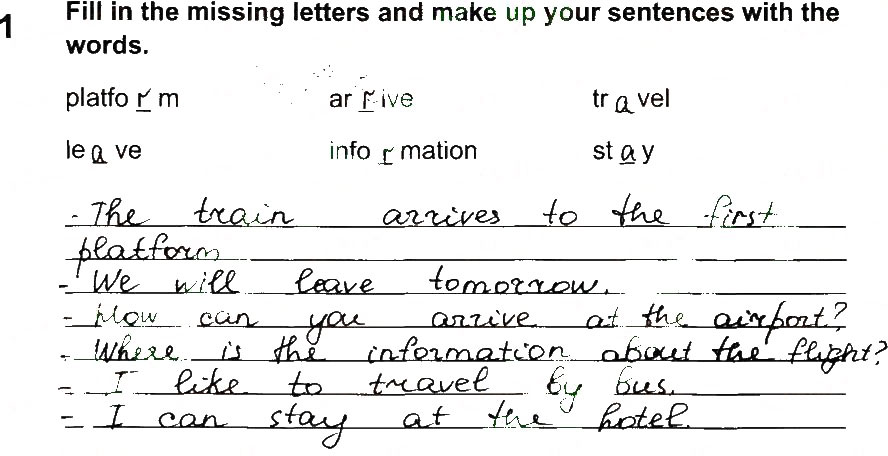 1 Fill in the missing letters and make up your sentences with the
words.
platfo r m ar r ive tr a vel
le a ve info r mation st a y
- The train arrives to the first
platform
- We will leave tomorrow.
- How can you arrive at the airport?
- Where is the information about the flight?
- I like to travel by bus.
- I can stay at the hotel.